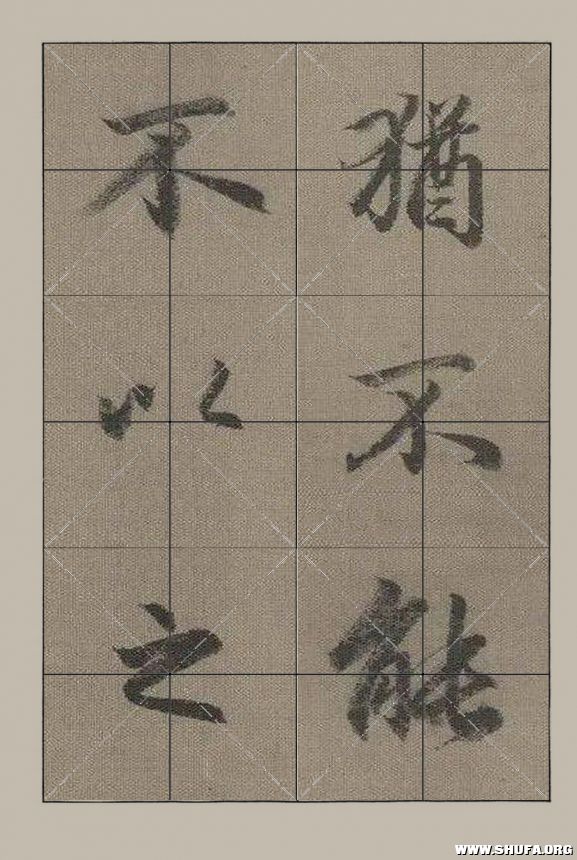 猶不能
不以之
WWW.SHUFA.ORG